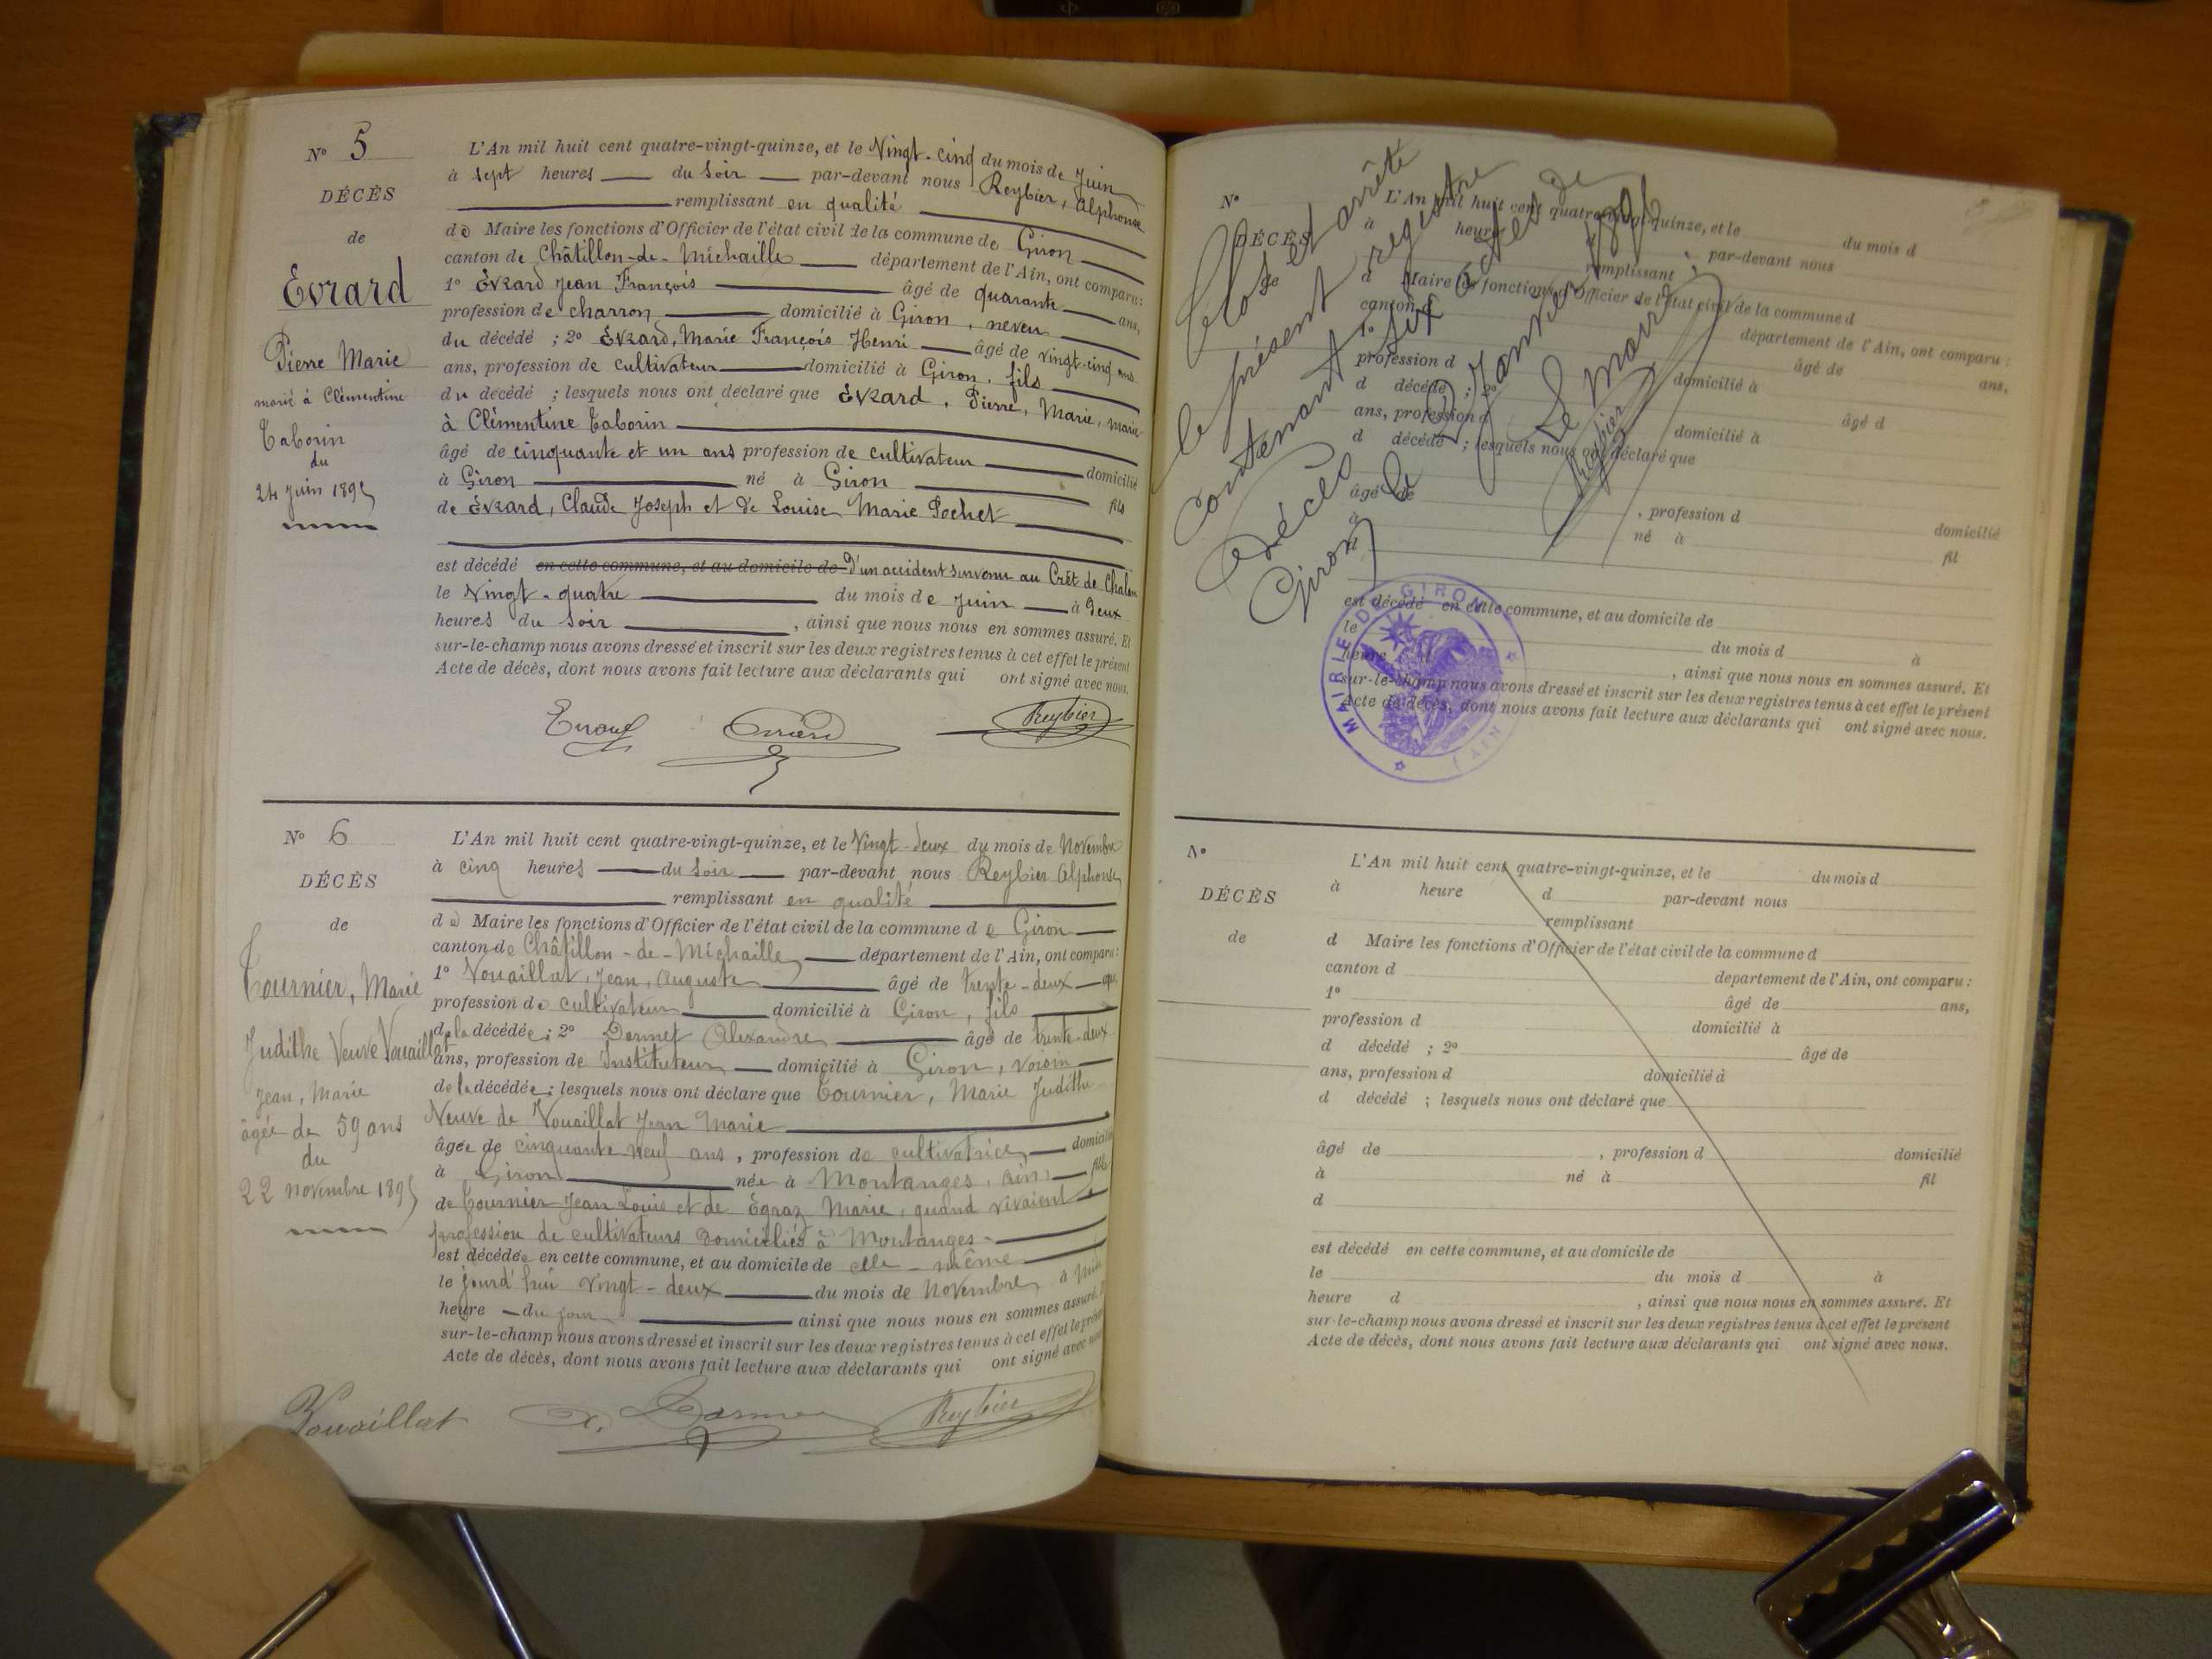 N° 5
DÉCÈS
de
Evrard
Pierre Marie
marié à Clémentine
Taborin
du
24 Juin 1895
L'An mil huit cent quatre-vingt-quinze, et le Vingt-cinq du mois de Juin
à sept heures du Soir par-devant nous Reybier, Alphonse
remplissant en qualité
de Maire les fonctions d'Officier de l'état civil de la commune de Giron
canton de Châtillon-de-Michaille département de l'Ain, ont comparu:
1° Evrard Jean François âgé de quarante ans,
profession de charron domicilié à Giron, neveu
du décédé ; 2° Evrard, Marie François Henri âgé de vingt-cinq ans
ans, profession de cultivateur domicilié à Giron, fils
du décédé ; lesquels nous ont déclaré que Evrard, Pierre, Marie, marié
à Clémentine Taborin
âgé de cinquante et un ans profession de cultivateur domicilié
à Giron né à Giron fils
de Evrard, Claude Joseph et de Louise Marie Pochet
est décédé en cette commune, et au domicile de D'un accident survenu au Crêt de Chalam
le Vingt-quatre du mois de Juin à Deux
heures du Soir , ainsi que nous nous en sommes assuré. Et
sur-le-champ nous avons dressé et inscrit sur les deux registres tenus à cet effet le présent
Acte de décès, dont nous avons fait lecture aux déclarants qui ont signé avec nous.
Reybier
N° 6
DÉCÈS
de
Tournier, Marie
Judithe Veuve Vouaillat
Jean, Marie
âgée de 59 ans
du
22 novembre 1895
L'An mil huit cent quatre-vingt-quinze, et le Vingt-deux du mois de Novembre
à cinq heures du Soir par-devant nous Reybier Alphonse
remplissant en qualité
de Maire les fonctions d'Officier de l'état civil de la commune de Giron
canton de Châtillon-de-Michaille département de l'Ain, ont comparu:
1° Vouaillat, Jean, Auguste âgé de trente-deux ans,
profession de cultivateur domicilié à Giron, fils
de la décédée; 2° Dormet Alexandre âgé de trente-deux
ans, profession de Instituteur domicilié à Giron, voisin
de la décédée; lesquels nous ont déclaré que Tournier, Marie Judithe
Veuve de Vouaillat Jean Marie
âgée de cinquante neuf ans, profession de cultivatrice domicilié
à Giron née à Montanges, Ain, fille
de Tournier Jean Louis et de Egraz Marie, quand vivaient
profession de cultivateurs domiciliés à Montanges
est décédée en cette commune, et au domicile de elle-même
le jourd'hui vingt-deux du mois de Novembre à midi
heure du jour ainsi que nous nous en sommes assuré. Et
sur-le-champ nous avons dressé et inscrit sur les deux registres tenus à cet effet le présent
Acte de décès, dont nous avons fait lecture aux déclarants qui ont signé avec nous
Vouaillat Reybier
Clos et arrêté
le présent registre
contenant six actes de
Décès
Giron, le 2 Janvier 1896
Le Maire,
Reybier
MAIRIE DE GIRON
(AIN)
N°
DÉCÈS
de
L'An mil huit cent quatre-vingt-quinze, et le du mois d
à heure d par-devant nous
remplissant
d Maire les fonctions d'Officier de l'état civil de la commune d
canton d département de l'Ain, ont comparu :
1° âgé de ans,
profession d domicilié à
d décédé ; 2° âgé d
ans, profession d domicilié à
d décédé ; lesquels nous ont déclaré que
âgé de , profession d domicilié
à né à fil
d
est décédé en cette commune, et au domicile de
le du mois d à
heure d , ainsi que nous nous en sommes assuré. Et
sur-le-champ nous avons dressé et inscrit sur les deux registres tenus à cet effet le présent
Acte de décès, dont nous avons fait lecture aux déclarants qui ont signé avec nous.
N°
DÉCÈS
de
L'An mil huit cent quatre-vingt-quinze, et le du mois d
à heure d par-devant nous
remplissant
d Maire les fonctions d'Officier de l'état civil de la commune d
canton d département de l'Ain, ont comparu :
1° âgé de ans,
profession d domicilié à
d décédé ; 2° âgé de
ans, profession d domicilié à
d décédé ; lesquels nous ont déclaré que
âgé de , profession d domicilié
à né à fil
d
est décédé en cette commune, et au domicile de
le du mois d à
heure d , ainsi que nous nous en sommes assuré. Et
sur-le-champ nous avons dressé et inscrit sur les deux registres tenus à cet effet le présent
Acte de décès, dont nous avons fait lecture aux déclarants qui ont signé avec nous.